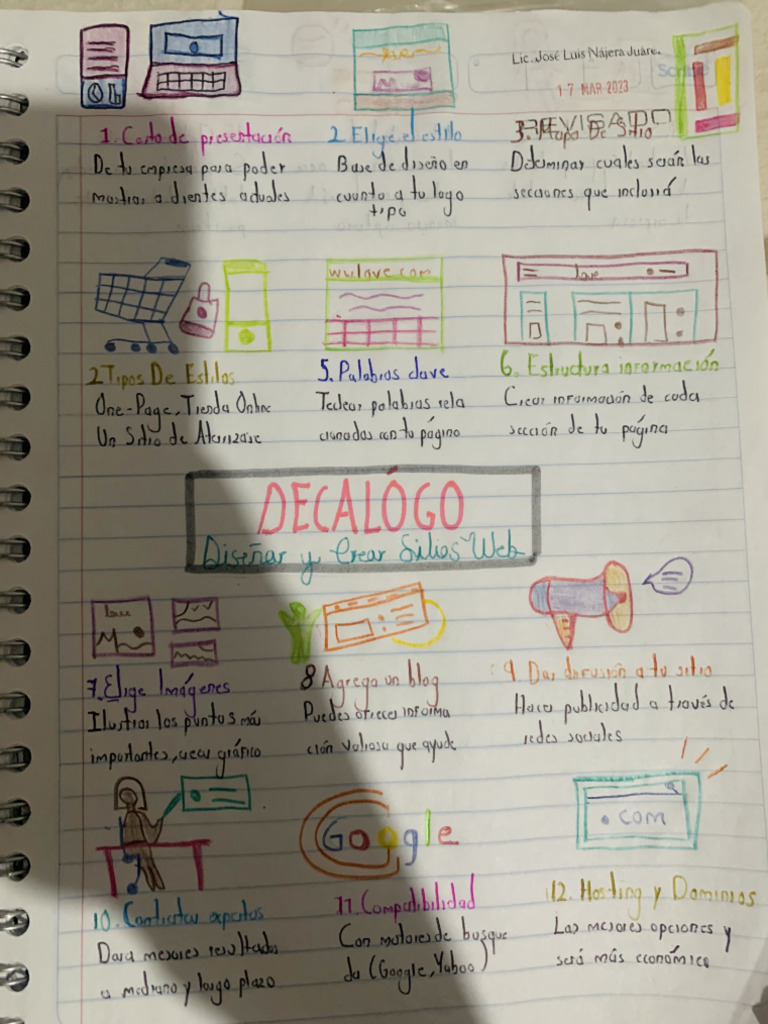 Lic. José Luis Nájera Juáre.
17 MAR 2023
REVISADO
1. Carta de presentación
De tu empresa para poder
mostrar a clientes actuales
2. Elige el estilo
Base de diseño en
cuanto a tu logo
tipo
3. Mapa De Sitio
Determinar cuales serán las
secciones que incluirá
2 Tipos De Estilos
One-Page, Tienda Online
Un Sitio de
wulove.com
5. Palabras clave
Teclear palabras rela
cionadas con tu página
love
6. Estructura información
Crear información de cada
sección de tu página
DECALÓGO
Diseñar y Crear Sitios Web
love
7. Elige Imágenes
Ilustrar los puntos más
importantes, crear gráfico
8 Agrega un blog
Puedes ofrecer informa
ción valiosa que ayude
9. Dar difusión a tu sitio
Hacer publicidad a través de
redes sociales
10. Contratar expertos
Dara mejores resultados
a mediano y largo plazo
Google
11. Compatibilidad
Con motores de busque
da (Google, Yahoo)
.com
12. Hosting y Dominios
Las mejores opciones y
será más económico